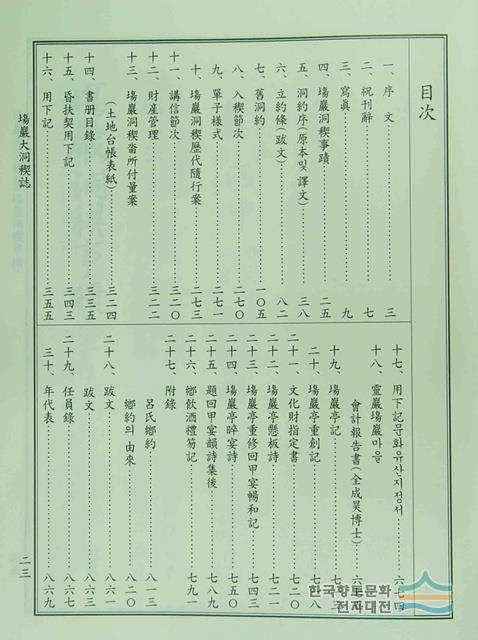 目次
一、序 文 三
二、祝刊辭 七
三、寫眞 九
四、場巖洞稧事蹟 二五
五、洞約序(原本및 譯文) 三八
六、立約條(跋文) 八二
七、舊洞約 一〇五
八、入稧節次 二七〇
九、單子様式 二七一
十、場巖洞稧歷代隨行案 二七三
十一、講信節次 三二〇
十二、財産管理 三二二
十三、場巖洞稧畓所付量案
(土地台帳表紙) 三二四
十四、書册目錄 三三五
十五、昏扶契用下記 三四三
十六、用下記 三五五
十七、用下記문화유산지정서 六七四
十八、靈巖場巖마을
會計報告書(全成昊博士)
十九、場巖亭記
二十、場巖亭重創記
二十一、文化財指定書 七二〇
二十二、場巖亭懸板詩 七二一
二十三、場巖亭重修回甲宴暢和記 七四三
二十四、場巖亭晬宴詩 七五〇
二十五、題回甲宴韻詩集後 七八九
二十六、鄕飮酒禮笏記 七九一
二十七、附錄
呂氏鄕約 八一三
鄕約의 由來 八二〇
二十八、跋文 八六一
跋文 八六三
二十九、任員錄 八六七
三十、年代表 八六九
場巖大洞稧誌
二三
한국향토문화
전자대전